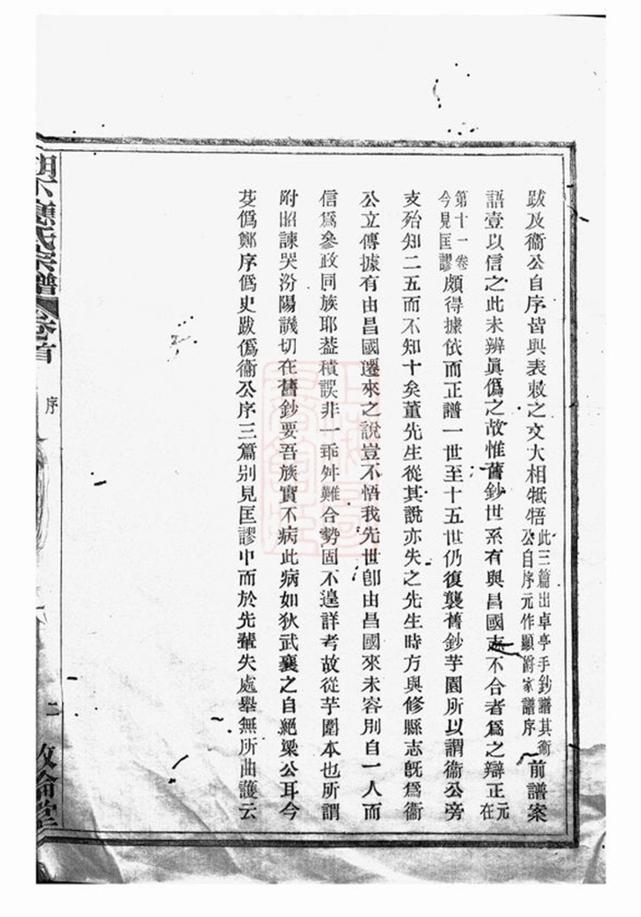 跋及衞公自序皆與表敕之文大相牴牾此三篇出卓亭手鈔譜其衞公自序元作顯爵家譜序前譜案
語壹以信之此未辨眞僞之故惟舊鈔世系有與昌國志不合者爲之辯正元在
第十一卷今見匡謬頗得據依而正譜一世至十五世仍復襲舊鈔芋園所以謂衞公旁
支殆知二五而不知十矣董先生從其說亦失之先生時方與修縣志旣爲衞
公立傳據有由昌國遷來之說豈不悟我先世卽由昌國來未容別自一人而
信爲參政同族耶葢積誤非一乖舛難合勢固不遑詳考故從芋園本也所謂
附昭諫哭汾陽譏切在舊鈔要吾族實不病此病如狄武襄之自絕梁公耳今
芟僞鄭序僞史跋僞衞公序三篇別見匡謬中而於先輩失處舉無所曲護云
氏宗譜
卷首
序
二
敦倫堂